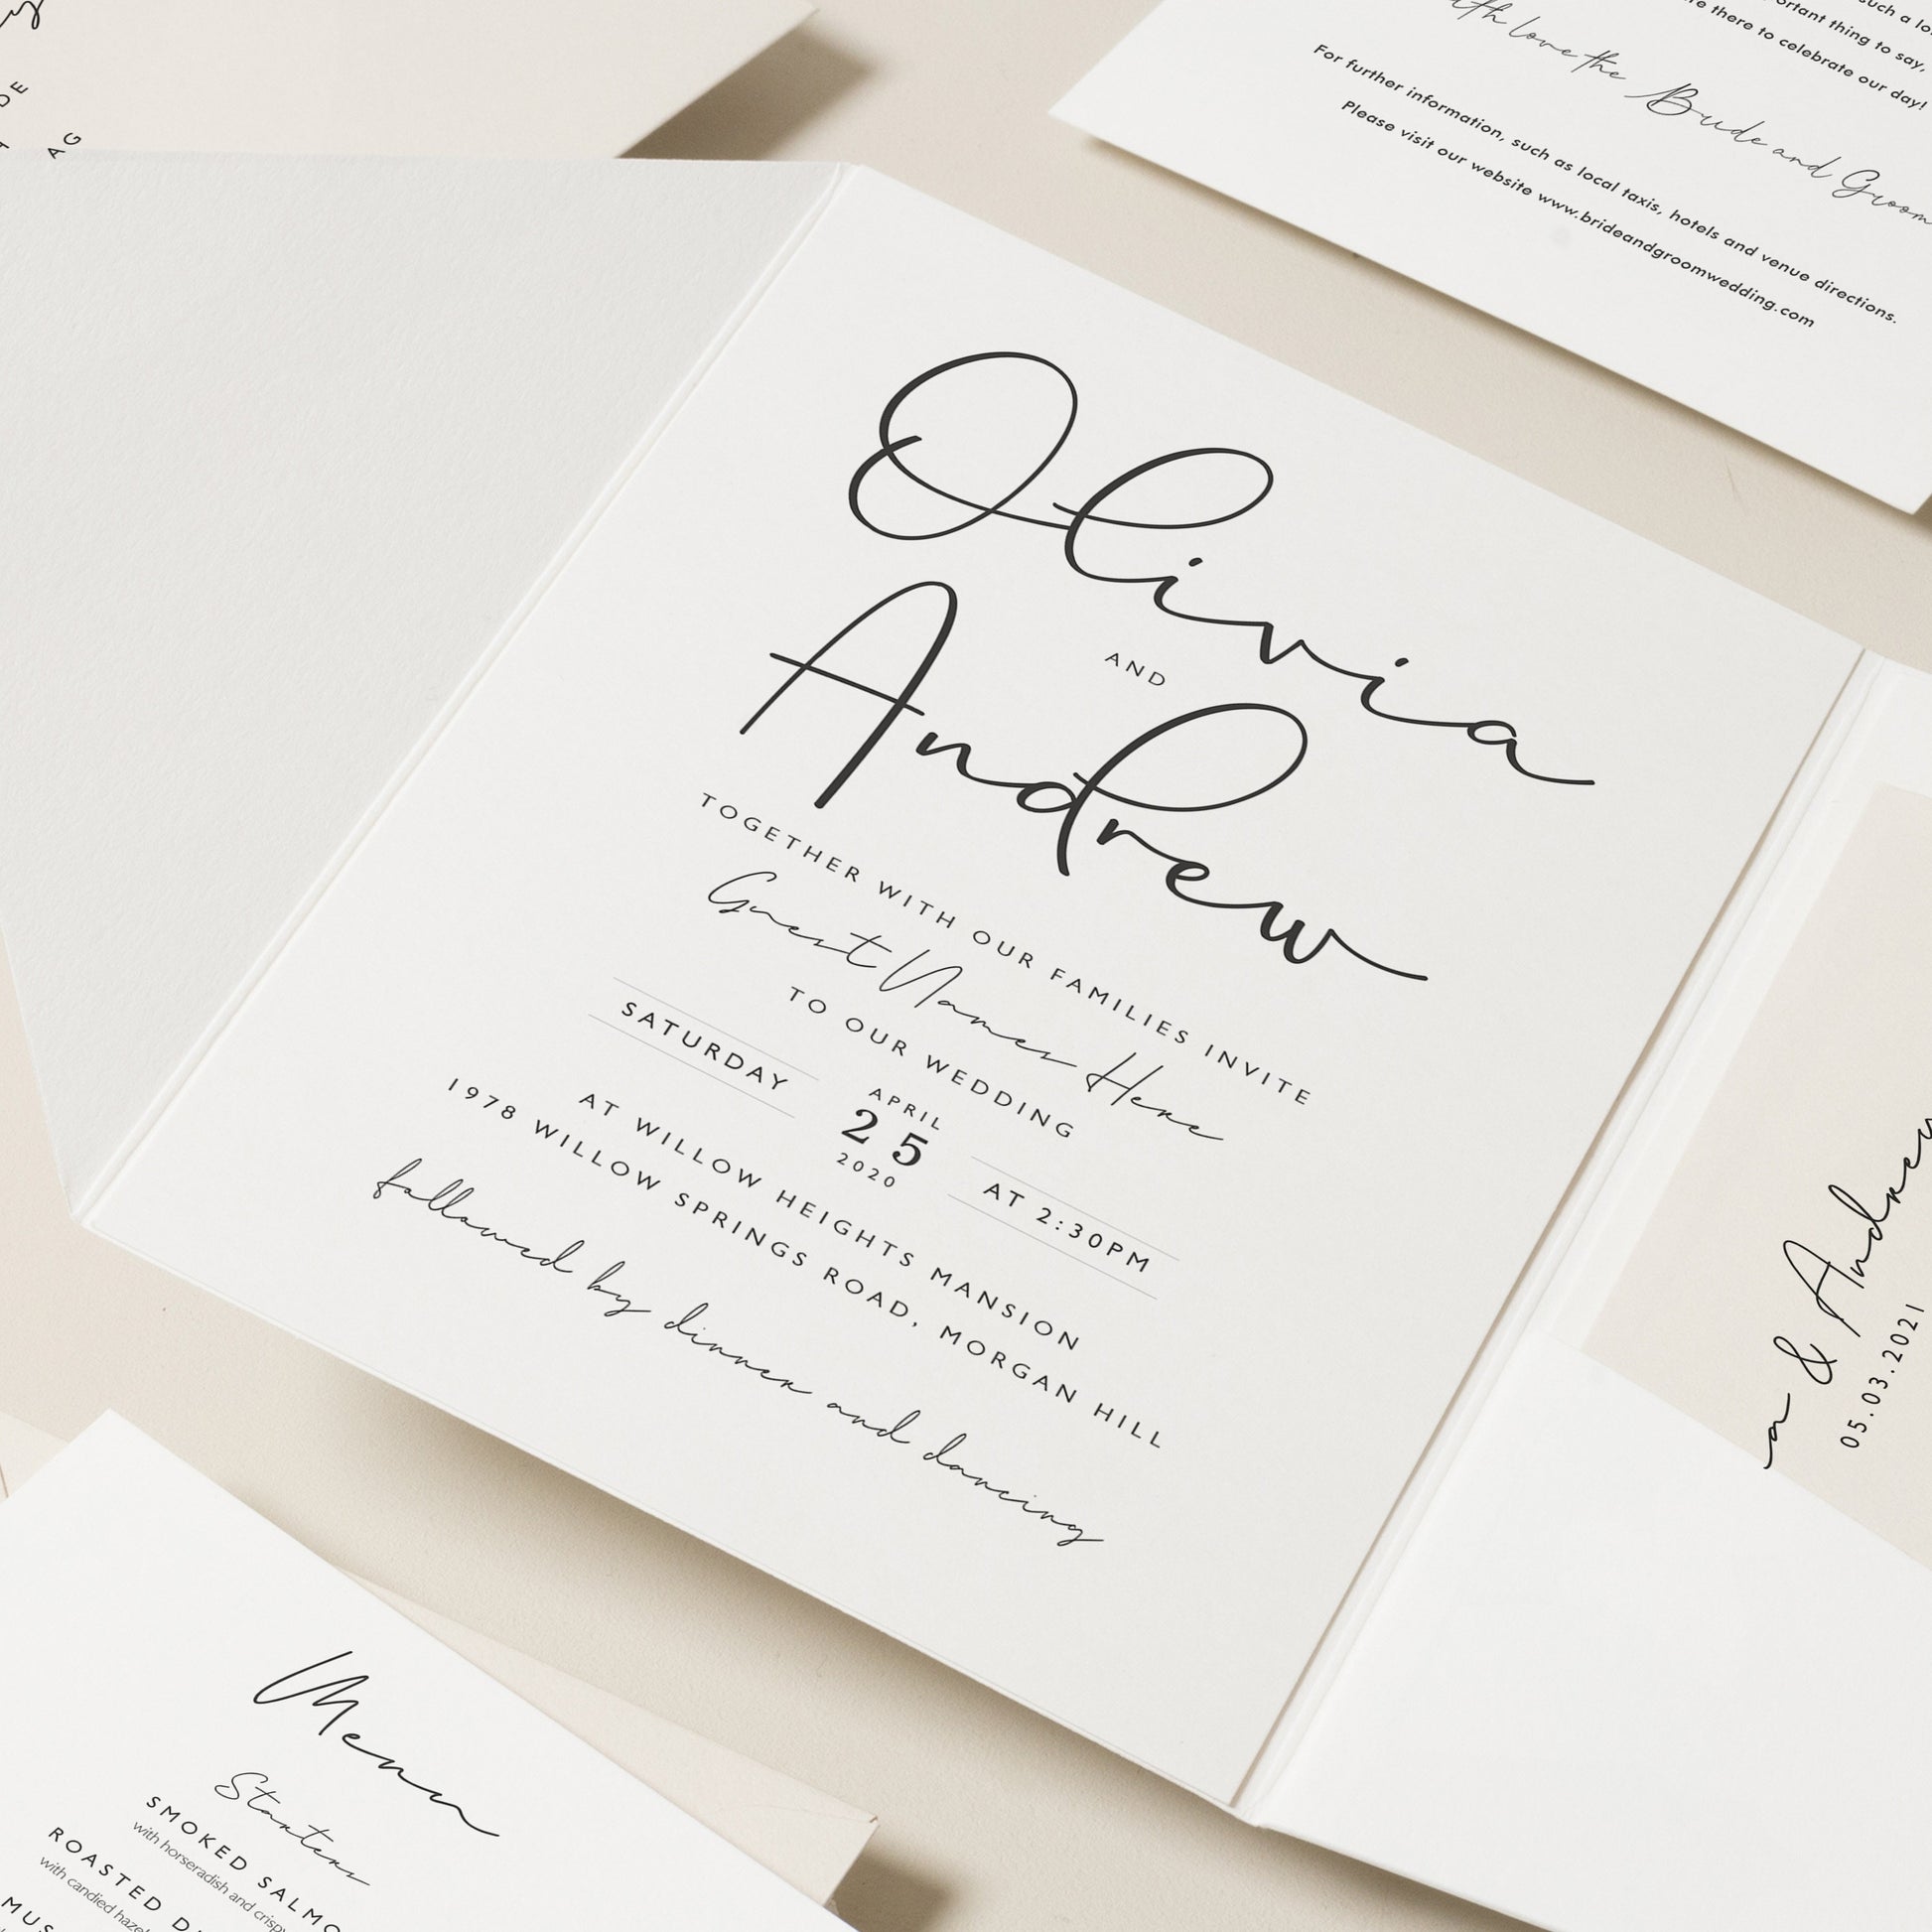 DE
AG
such a
important thing to say,
there to celebrate our day!
love the Bride and Groom
For further information, such as local taxis, hotels and venue directions.
Please visit our website www.brideandgroomwedding.com
Olivia
AND
Andrew
TOGETHER WITH OUR FAMILIES INVITE
Guest Names Here
TO OUR WEDDING
SATURDAY
APRIL
25
2020
AT 2:30PM
AT WILLOW HEIGHTS MANSION
1978 WILLOW SPRINGS ROAD, MORGAN HILL
followed by dinner and dancing
& Andrew
05.03.2021
Menu
Starters
SMOKED SALMO
with horseradish and crispy
ROASTED D
with candied haze
MUS